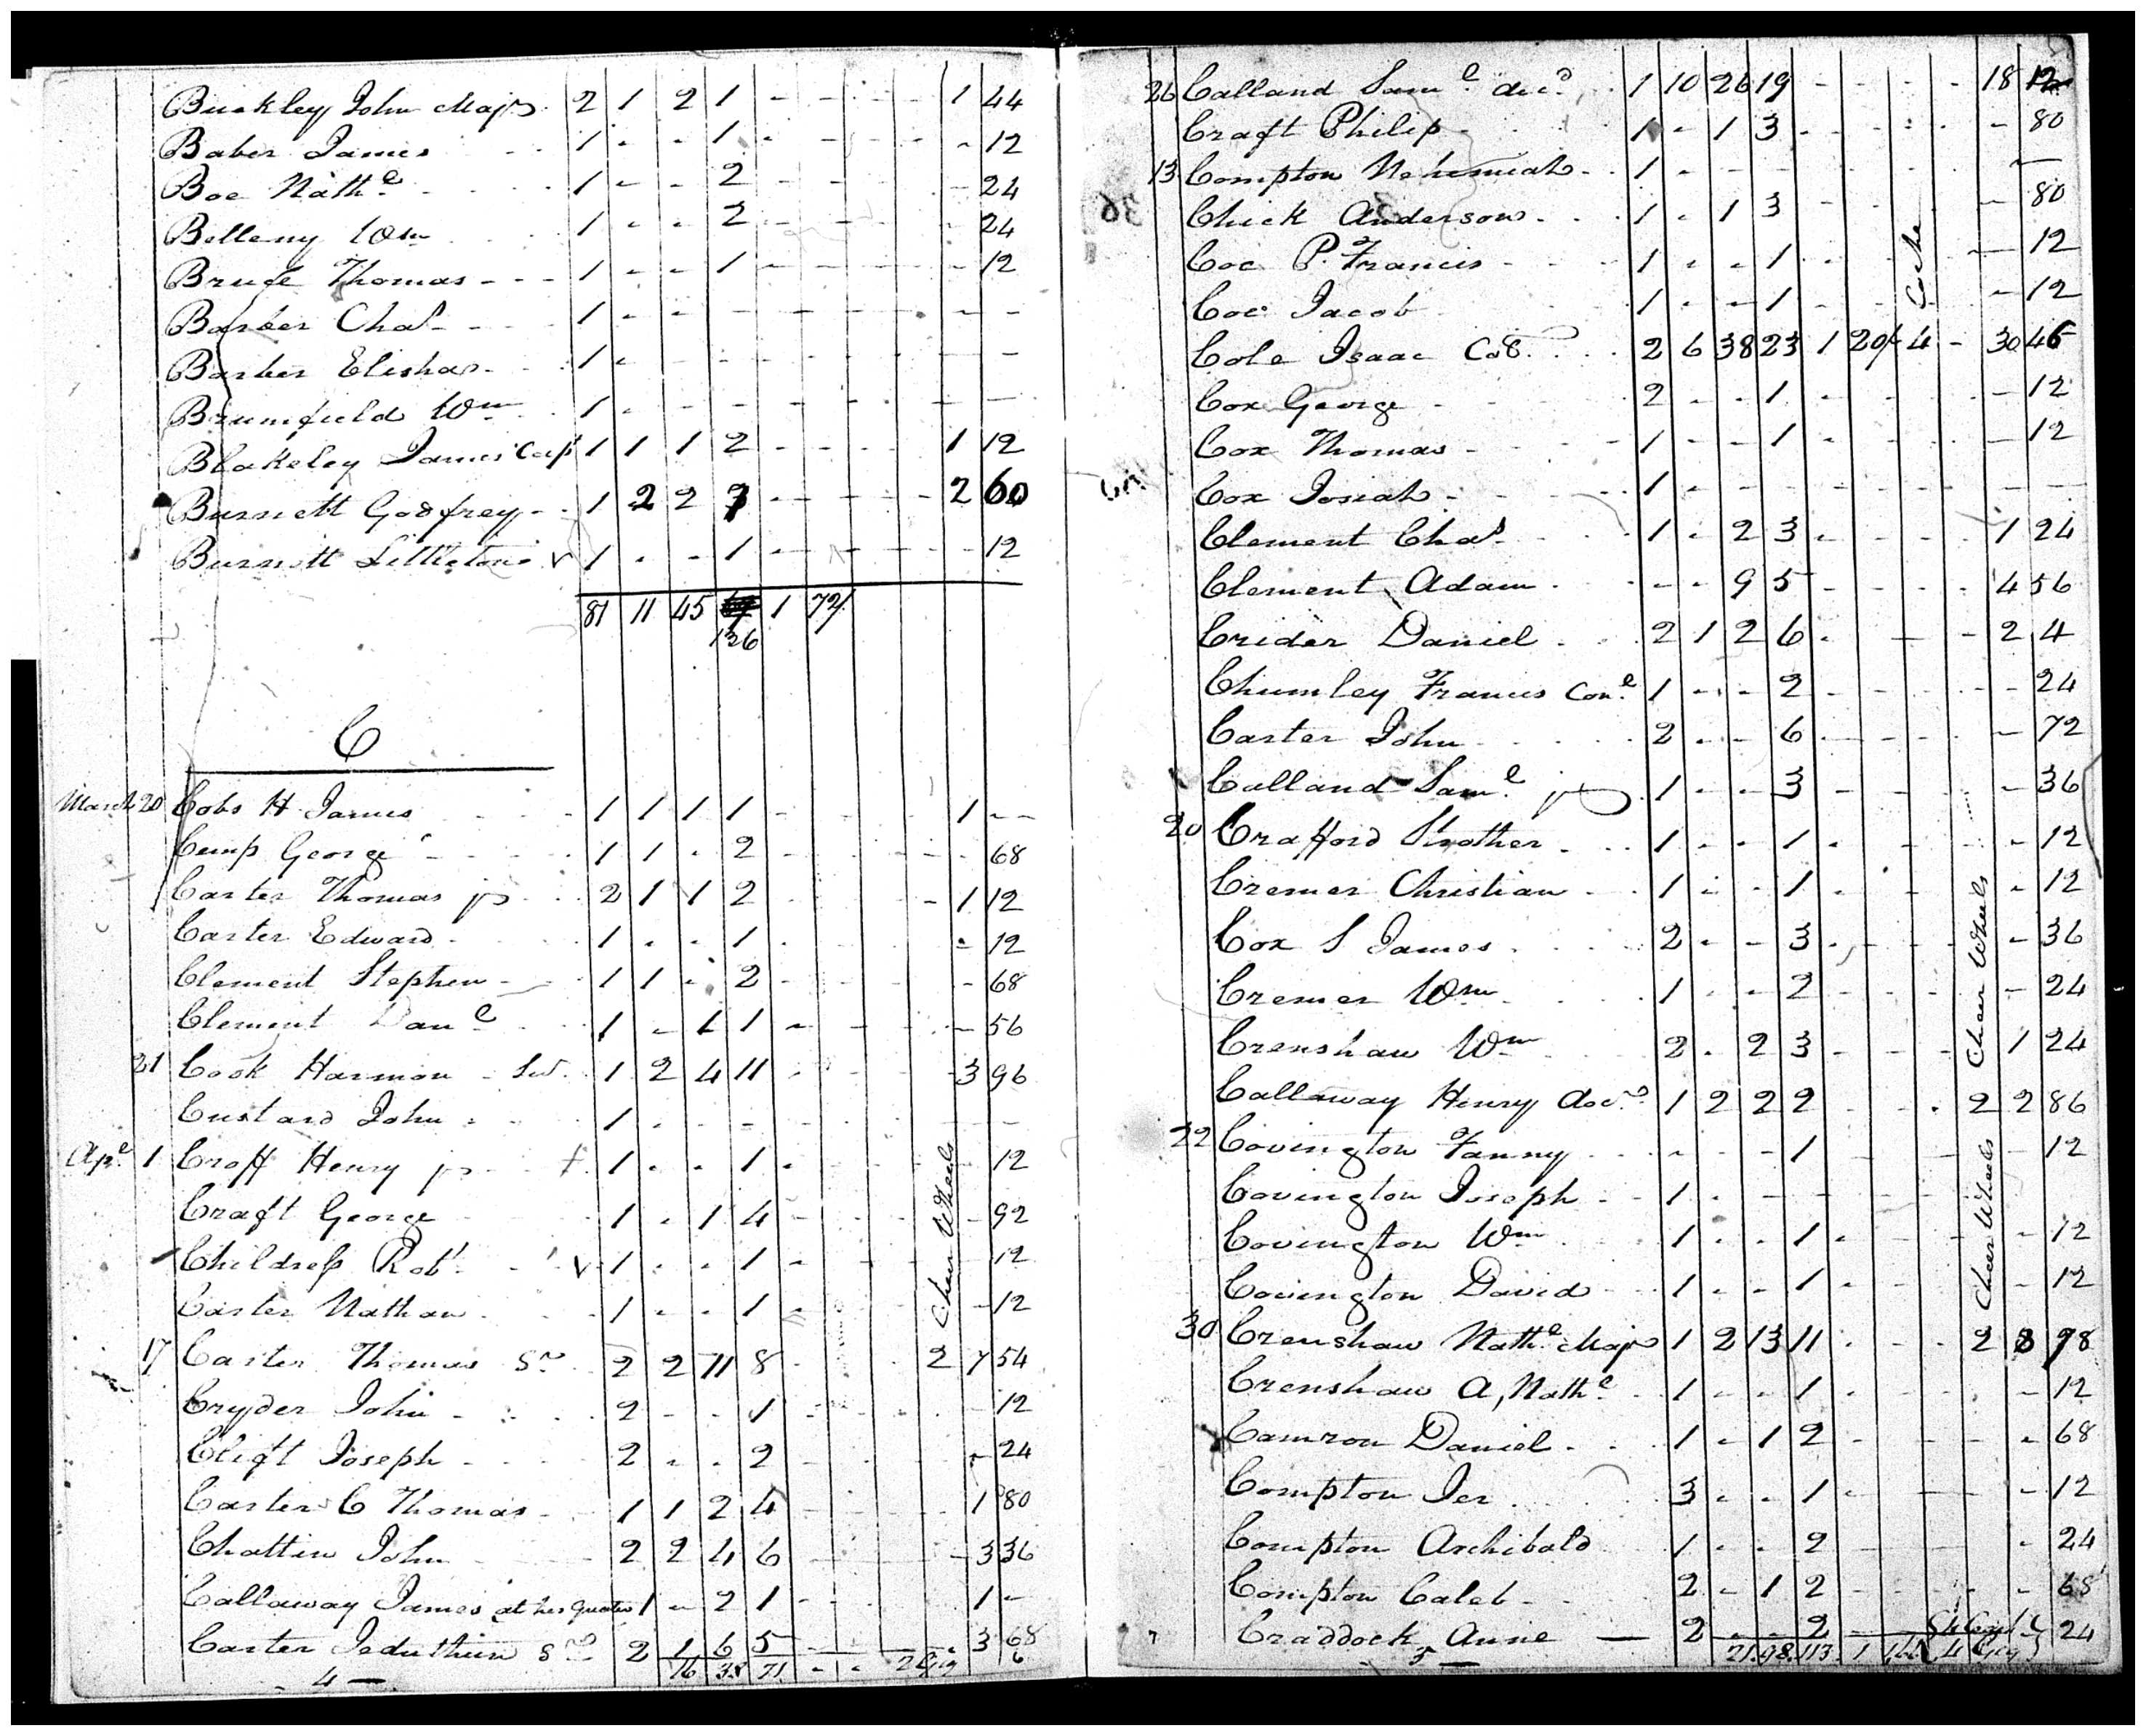 Buckley John Majr 2 1 2 1 - - - - 1 44
Baber James 1 - - 1 - - - - - 12
Boe Nathl 1 - - 2 - - - - - 24
Belleny Wm 1 - - 2 - - - - - 24
Bruce Thomas 1 - - 1 - - - - - 12
Barber Chas 1 - - - - - - - - -
Barber Elisha 1 - - - - - - - - -
Brumfield Wm 1 - - - - - - - - -
Blakeley James Capt 1 1 1 2 - - - - 1 12
Burnett Godfrey 1 2 2 - - - - 2 60
Burnett Littleton v 1 - - 1 - - - - - 12
81 11 45 1 72/
126
C
March 20 Cobs H James 1 1 1 1 - - - - 1 - -
Cemp George 1 1 - 2 - - - - - 68
Carter Thomas jr 2 1 1 2 - 1 12
Carter Edward 1 - - 1 - - 12
Clement Stephen 1 1 - 2 - - - - - 68
Clement Danl 1 - 1 1 - - - - - 56
21 Cook Harmon 1 2 4 11 - - - - 3 96
Custard John 1 - - - - - - - - -
Apl 1 Croff Henry jr 1 - - 1 - - - - 12
Craft George 1 - 1 4 - - - - - 92
Childress Robt v 1 - - 1 - - - - 12
Carter Nathan 1 - - 1 - - 12
Chear Wheels
17 Carter Thomas Sr 2 2 11 8 - 2 7 54
Cryder John 2 - - 1 - - - - - 12
Clift Joseph 2 - - 2 - - 24
Carter C Thomas 1 1 2 4 - - - - 1 80
Chattin John 2 2 4 6 - - - - 3 36
Callaway James at hes Quarter 1 - 2 1 - - 1 -
Carter Jeduthun Sr 2 1 6 5 - - - - 3 68
16 38 71 - - 2 Gig 6
4
26 Calland Saml decd 1 10 26 19 - - - - 18 12
Craft Philip 1 - 1 3 - - - - - 80
13 Compton Nehemiah 1 - - - - - - - - -
36
Chick Anderson 1 - 1 3 - - - - - 80
Coe P. Francis 1 - - 1 - - - - - 12
Coe Jacob 1 - - 1 - - - - - 12
Cole Isaac Col. 2 6 38 23 1 20/ 4 - 30 46
Cox George 2 - - 1 - - - - - 12
Cox Thomas 1 - - 1 - - 12
Cox Josiah 1 - - - - - - - - -
Clement Chas 1 - 2 3 - - - - 1 24
Clement Adam - - 9 5 - - - - 4 56
Crider Daniel 2 1 2 6 - - - - 2 4
Chumley Francis Conl 1 - - 2 - - - - - 24
Carter John 2 - - 6 - - - - - 72
Calland Saml jr 1 - - 3 - - - - - 36
20 Crafford Strother 1 - - 1 - - - - 12
Cremer Christian 1 - - 1 - - - - 12
Cox S James 2 - - 3 - - - - - 36
Cremer Wm 1 - - 2 - - - - - 24
Crenshaw Wm 2 - 2 3 - - - 1 24
Chear Wheels
Callaway Henry Docr 1 2 2 2 - - - 2 2 86
22 Covington Fanny - - - 1 - - - - - 12
Covington Joseph 1 - - - - - - -
Covington Wm 1 - - 1 - - - 12
Covington David 1 - - 1 - - - 12
Chear Wheels
30 Crenshaw Nathl Majr 1 2 13 11 - - - 2 8 98
Crenshaw A, Nathl 1 - - 1 - - - - 12
Camron Daniel 1 - 1 2 - - - - - 68
Compton Jer 3 - - 1 - - - - - 12
Compton Archibald 1 - - 2 - - - - - 24
Compton Caleb 2 - 1 2 - - - - - 68
Craddock Anne 2 - - 2 - 24
21 98 113 1 4 Gig
5